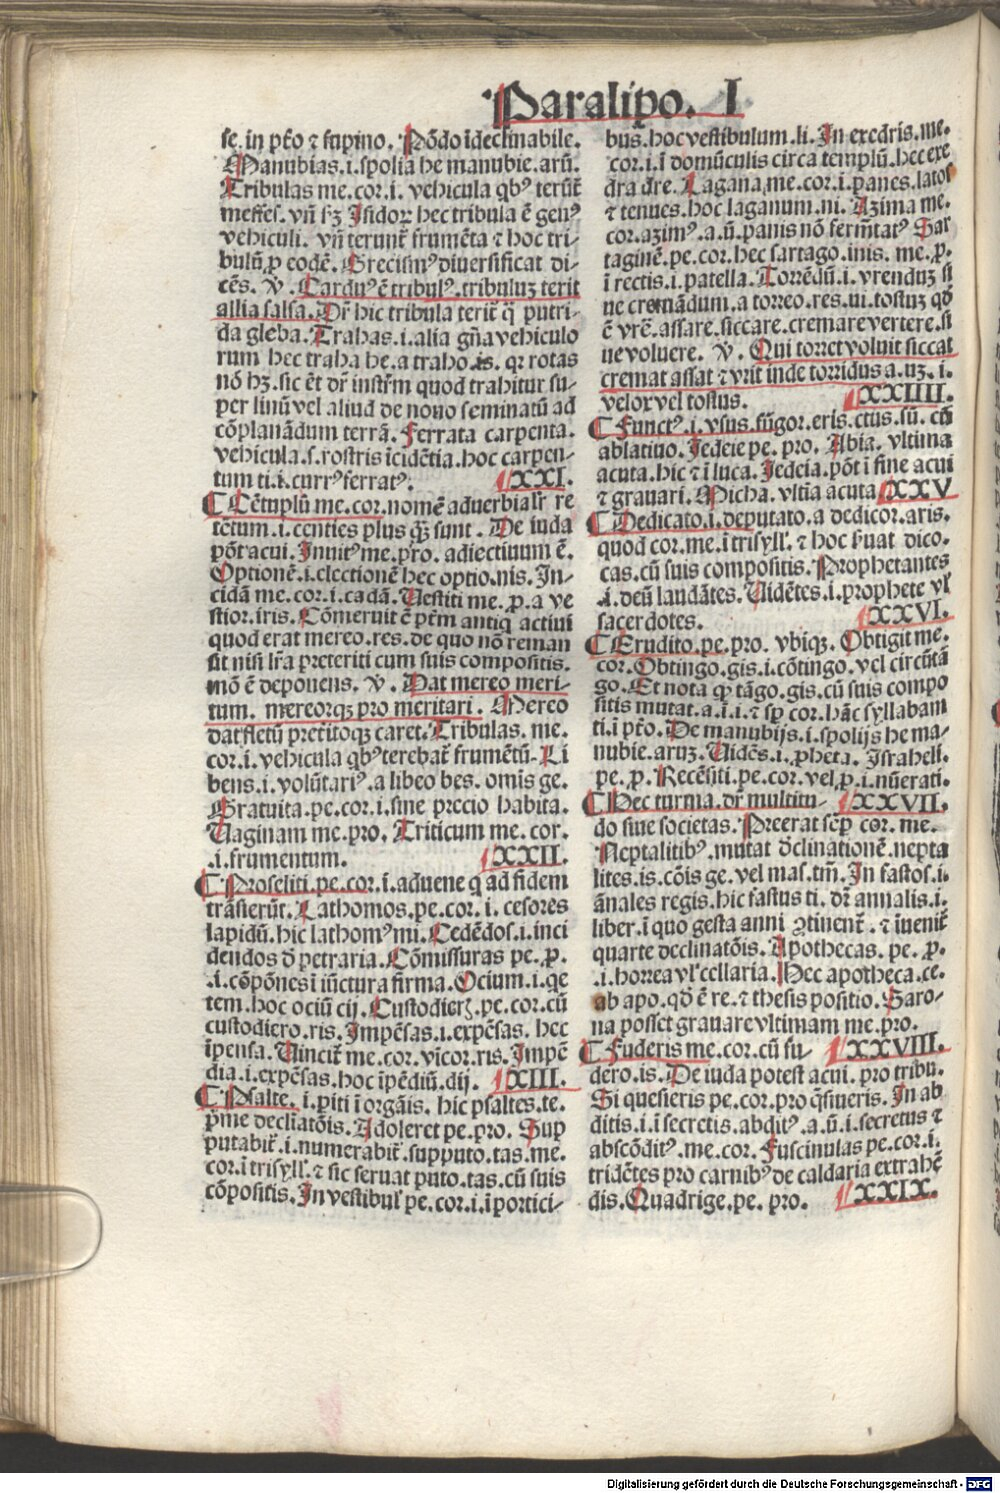 Paralipo. I
se. in pt̄o ⁊ supino. Pōdo īdeclinabile.
Manubias .i. spolia he manubie. arū.
Tribulas me. cor .i. vehicula qbꝰ terūt̄
messes. vn̄ sꝫ Isidorꝰ hec tribula ē genꝰ
vehiculi. vn̄ terunt̄ frumēta ⁊ hoc tri-
bulū ꝓ eodē. Grecismꝰ diuersificat di-
cēs. ℣. Carduꝰ ē tribulꝰ. tribuluꝫ terit
allia salsa. Dr̄ hic tribula terit̄ q̄ putri-
da gleba. Trahas .i. alia gn̄a vehiculo
rum hec traha he. a traho .is. qꝛ rotas
nō hꝫ. sic ēt dr̄ instr̄m quod trahitur su-
per linū vel aliud de nouo seminatū ad
cōplanādum terrā. Ferrata carpenta.
vehicula .s. rostris īcidētia. hoc carpen-
tum ti .i. currꝰ ferratꝰ. XXI.
Cētuplū me. cor. nomē aduerbialr̄ re
tētum .i. centies plus q̄ꝫ sunt. De iuda
pōt acui. Inuitꝰ me. pro. adiectiuum ē.
Optionē .i. electionē hec optio. nis. In-
cidā me. cor .i. cadā. Uestiti me. ꝓ. a ve
stior. iris. Cōmeruit ē pt̄m antiqͥ actiui
quod erat mereo. res. de quo nō reman
sit nisi lr̄a preteriti cum suis compositis.
mō ē deponens. ℣. Dat mereo meri-
tum. mereorqꝫ pro meritari. Mereo
dat fletū pretitoqꝫ caret. Tribulas. me.
cor .i. vehicula qbꝰ terebat̄ frumētū. Li
bens .i. volūtariꝰ. a libeo bes. omīs ge.
Gratuita. pe. cor .i. sine precio habita.
Uaginam me. pro. Triticum me. cor.
.i. frumentum. XXII.
Proseliti. pe. cor .i. aduene q ad fidem
trāsierūt. Lathomos. pe. cor .i. cesores
lapidū. hic lathomꝰ mi. Cedēdos .i. inci
dendos ð petraria. Cōmissuras pe. ꝓ.
.i. cōpōnes ī iūctura firma. Ocium .i. qe
tem. hoc ociū cij. Custodierꝫ. pe. cor. cū
custodiero. ris. Impēsas .i. expēsas. hec
īpensa. Uincit̄ me. cor. vicor. ris. Impē
dia .i. expēsas. hoc īpēdiū. dij. XIII.
Psalte. .i. piti ī orgāis. hic psaltes. te.
pͥme decliatōis. Adoleret pe. pro. Sup
putabit̄ .i. numerabit̄. supputo. tas. me.
cor. ī trisyll'. ⁊ sic seruat puto. tas. cū suis
cōpositis. In vestibul' pe. cor .i. ī portici-
bus. hoc vestibulum. li. In exedris. me.
cor .i. ī domūculis circa templū. hec exe
dra dre. Lagana me. cor .i. panes. latos
⁊ tenues. hoc laganum. ni. Azima me.
cor. azimꝰ. a. ū. panis nō ferm̄tatꝰ. Sar
taginē. pe. cor. hec sartago. inis. me. ꝓ.
ī rectis .i. patella. Torrēdū .i. vrenduꝫ si
ne cremādum. a torreo. res. ui. tostuꝫ qð
ē vrē. assare. siccare. cremare vertere. si
ue voluere. ℣. Qui torret voluit siccat
cremat assat ⁊ vrit inde torridus a. uꝫ .i.
velox vel tostus. XXIIII.
Functꝰ .i. vsus. fūgor. eris. ctus. sū. cū
ablatiuo. Iedeie pe. pro. Abia. vltima
acuta. hic ⁊ ī luca. Iedeia. pōt ī fine acui
⁊ grauari. Micha. vltīa acuta XXV
Dedicato .i. deputato. a dedicor. aris.
quod cor. me. ī trisyll'. ⁊ hoc s̄uat dico-
cas. cū suis compositis. Prophetantes
.i. deū laudātes. Uidētes .i. prophete vl'
sacerdotes. XXVI.
Erudito. pe. pro. vbiqꝫ. Obtigit me.
cor. Obtingo. gis .i. cōtingo. vel circūtā
go. Et nota ꝙ tāgo. gis. cū suis compo
sitis mutat. a .i. ī. ⁊ sp̄ cor. hāc syllabam
ti. ī pt̄o. De manubijs .i. spolijs he ma-
nubie. aruꝫ. Uidēs .i. ꝓheta. Israheli.
pe. ꝓ. Recēsiti. pe. cor. vel ꝓ .i. nūerati.
Hec turma. dr̄ multitu- XXVII.
do siue societas. Preerat sēp cor. me.
Neptalitibꝰ. mutat ðclinationē. nepta
lites. is. cōis ge. vel mas. tm̄. In fastos .i.
ānales regis. hic fastus ti. dr̄ annalis .i.
liber. ī quo gesta anni ꝯtinent̄. ⁊ īuenit̄
quarte declinatōis. Apothecas. pe. ꝓ.
.i. horrea vl' cellaria. Hec apotheca. ce.
ab apo. qð ē re. ⁊ thesis positio. Saro-
na posset grauare vltimam me. pro.
Fuderis me. cor. cū su- XXVIII.
dero. is. De iuda potest acui. pro tribu.
Si quesieris pe. cor. pro qͥsiueris. In ab
ditis .i. ī secretis. abditꝰ. a. ū .i. secretus ⁊
abscōditꝰ. me. cor. Fuscinulas pe. cor .i.
tridētes pro carnibꝰ de caldaria extrahē
dis. Quadrige. pe. pro. XXIX.
Digitalisierung gefördert durch die Deutsche Forschungsgemeinschaft - DFG